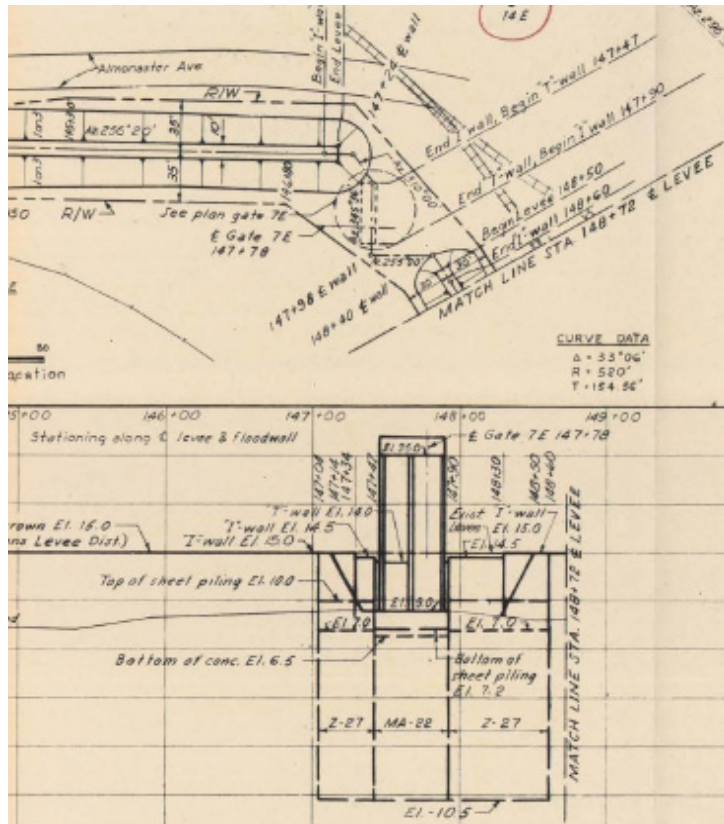 14 E
Almonaster Ave
R/W
Begin "I"-wall
End Levee
147+24 ℄ wall
End I wall, Begin "T"-wall 147+47
End "T"-wall, Begin "I"-wall 147+90
Begin Levee 148+50
End "I"-wall 148+60
MATCH LINE STA. 148+72 ℄ LEVEE
Az 256°20'
35'
10'
35'
R/W
See plan gate 7E
℄ Gate 7E
147+78
147+98 ℄ wall
148+40 ℄ wall
CURVE DATA
Δ = 33°06'
R = 520'
T = 154.56'
146+00
147+00
148+00
149+00
Stationing along ℄ levee & floodwall
℄ Gate 7E 147+78
El. 25.0
147+04
147+14
147+34
147+47
147+90
148+30
148+50
148+60
"T"-wall El. 14.0
"I"-wall El. 14.5
"I"-wall El. 15.0
Exist Levee
I"-wall
El. 15.0
El. 14.5
rown El. 16.0
ns Levee Dist.)
Top of sheet piling El. 10.0
El. 9.0
El. 7.0
El. 7.0
Bottom of conc. El. 6.5
Bottom of
sheet piling
El. 7.2
Z-27
MA-22
Z-27
MATCH LINE STA. 148+72 ℄ LEVEE
El. -10.5